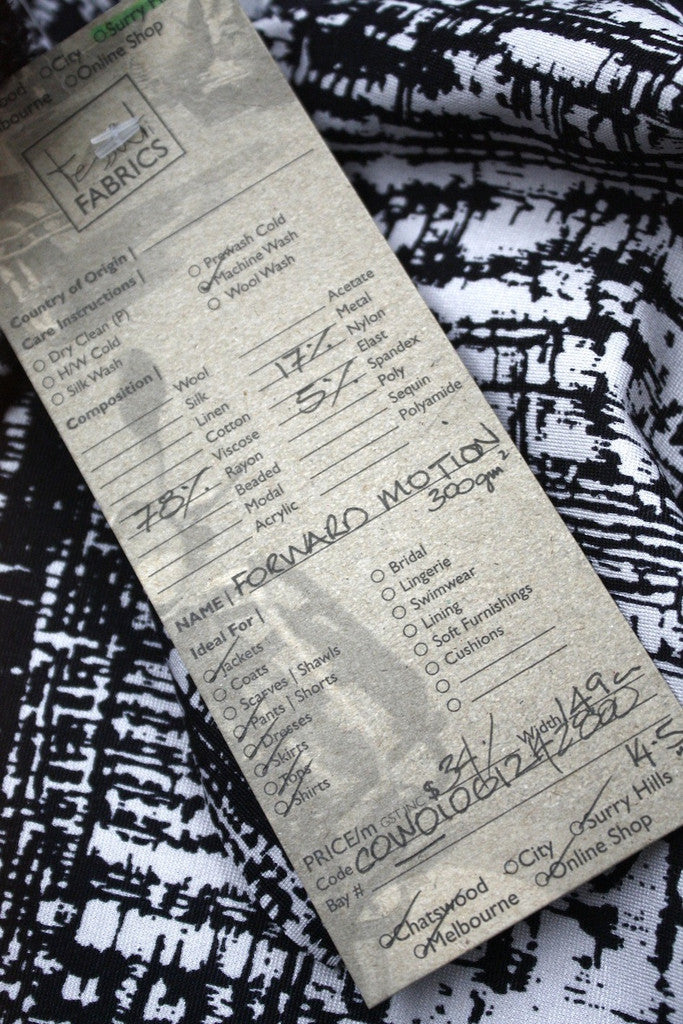 City
Surry H
ood
Online Shop
bourne
FABRICS
Country of Origin |
Care Instructions |
Prewash Cold
Machine Wash
Wool Wash
Dry Clean (P)
H/W Cold
Silk Wash
Composition |
Wool
Silk
Linen
Cotton
Viscose
78% Rayon
Beaded
Modal
Acrylic
Acetate
Metal
17% Nylon
Elast
5% Spandex
Poly
Sequin
Polyamide
NAME | FORWARD MOTION
300gm²
Ideal For |
Jackets
Coats
Scarves | Shawls
Pants | Shorts
Dresses
Skirts
Tops
Shirts
Bridal
Lingerie
Swimwear
Lining
Soft Furnishings
Cushions
PRICE/m GST INC $34/ Width 149
Code
Bay #
14.5
Chatswood
City
Surry Hills
Melbourne
Online Shop